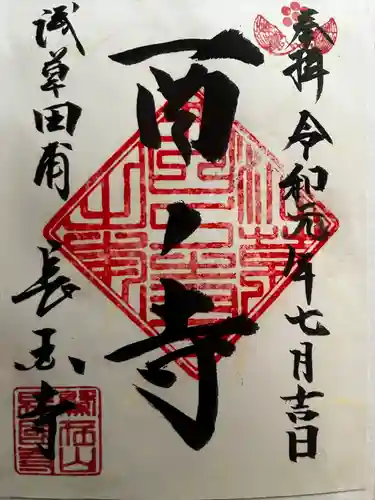 奉拝 令和元年七月吉日
酉ノ寺
浅草田甫 長国寺